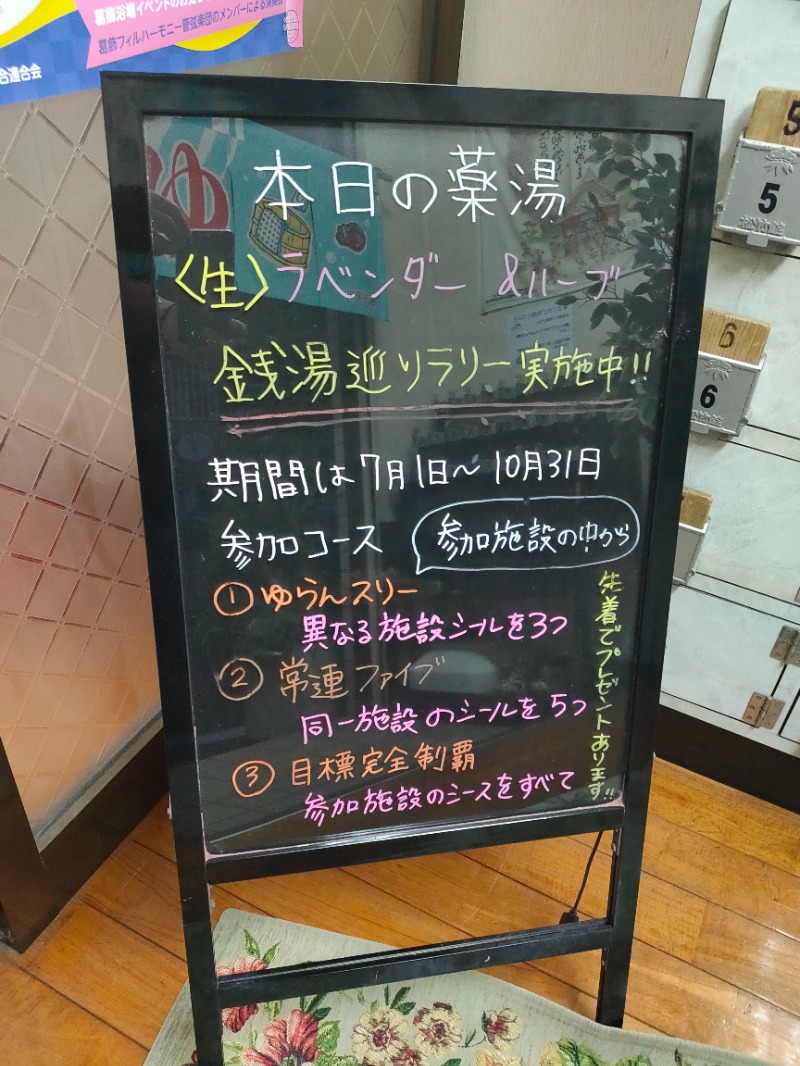 葛飾フィルハーモニー管弦楽団のメンバーによる演奏
合連合会
ゆ
本日の薬湯
〈生〉ラベンダー &ルーブ
銭湯巡りラリー実施中!!
期間は7月1日～10月31日
参加コース
参加施設の中から
①ゆらんスリー
異なる施設シールを3つ
②常連ファイブ
同一施設のシールを5つ
③目標完全制覇
参加施設のシースをすべて
先着でプレゼントあります!!
5
5
松竹錠
6
6